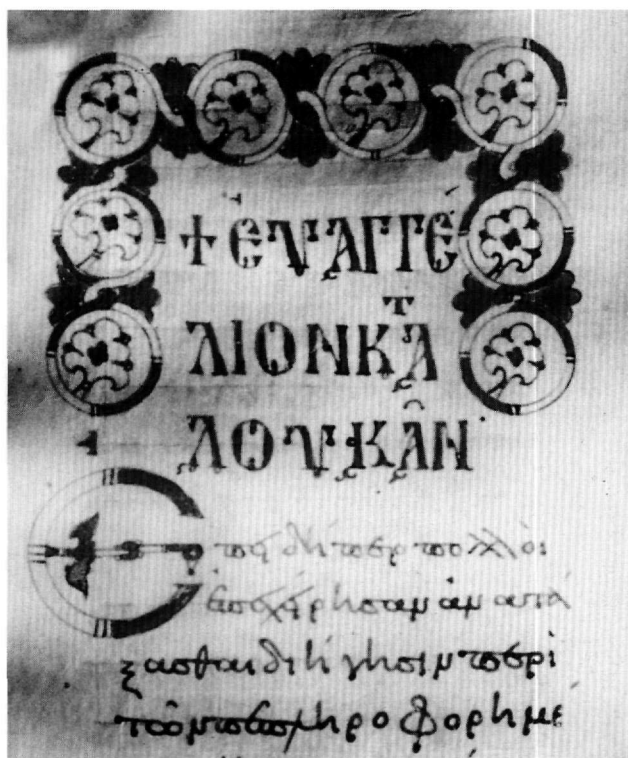 + ἐυαγγέ
λιον κατ
λουκᾶν
Επειδήπερ πολλοὶ
ἐπεχείρησαν ἀνατά
ξασθαι διήγησιν περὶ
τῶν πεπληροφορημέ